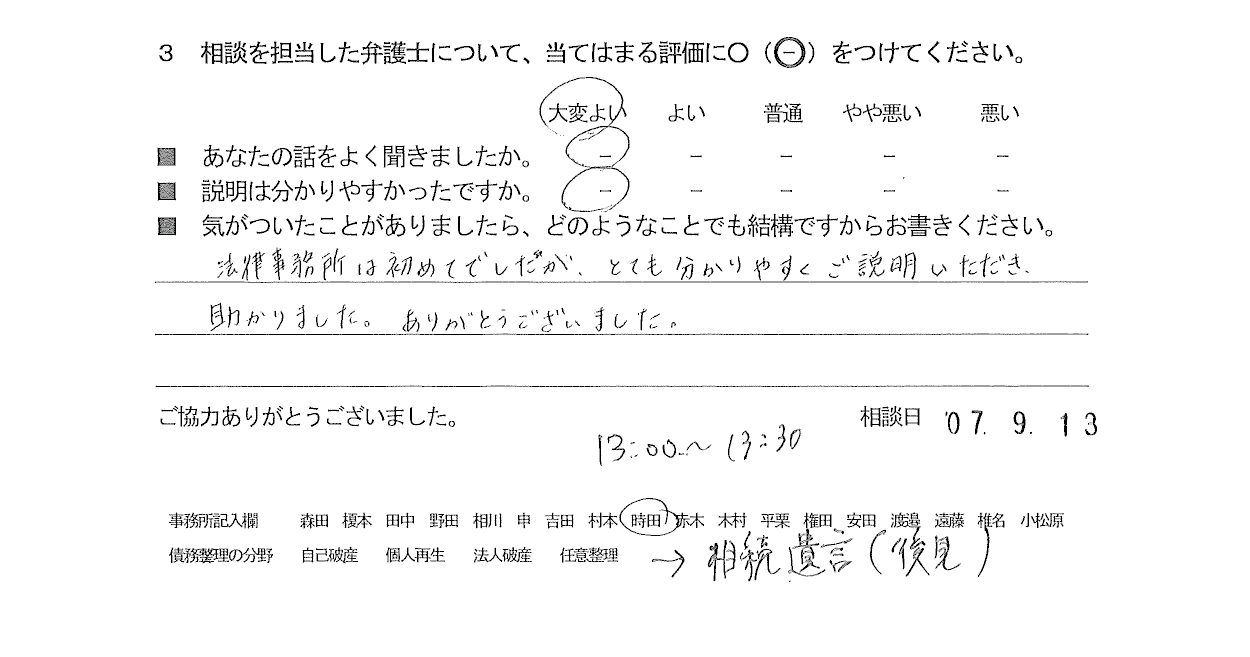 3 相談を担当した弁護士について、当てはまる評価に○（㊀）をつけてください。
大変よい よい 普通 やや悪い 悪い
■ あなたの話をよく聞きましたか。 － － － － －
■ 説明は分かりやすかったですか。 － － － － －
■ 気がついたことがありましたら、どのようなことでも結構ですからお書きください。
法律事務所は初めてでしたが、とても分かりやすくご説明いただき、
助かりました。ありがとうございました。
ご協力ありがとうございました。 相談日 '07. 9. 13
13:00～13:30
事務所記入欄 森田 榎本 田中 野田 相川 申 吉田 村本 時田 赤木 木村 平栗 権田 安田 渡邉 遠藤 椎名 小松原
債務整理の分野 自己破産 個人再生 法人破産 任意整理 → 相続遺言(後見)